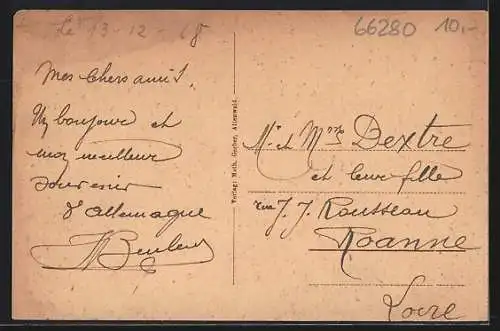 Le 13-12-18
66280 10,-
Mes Chers amis.
Un bonjour et
mon meilleur
souvenir
d'allemagne
Verlag: Math. Gerber, Altenwald.
Mr et Mme Dextre
et leur fille
rue J. J. Rousseau
Roanne
Loire